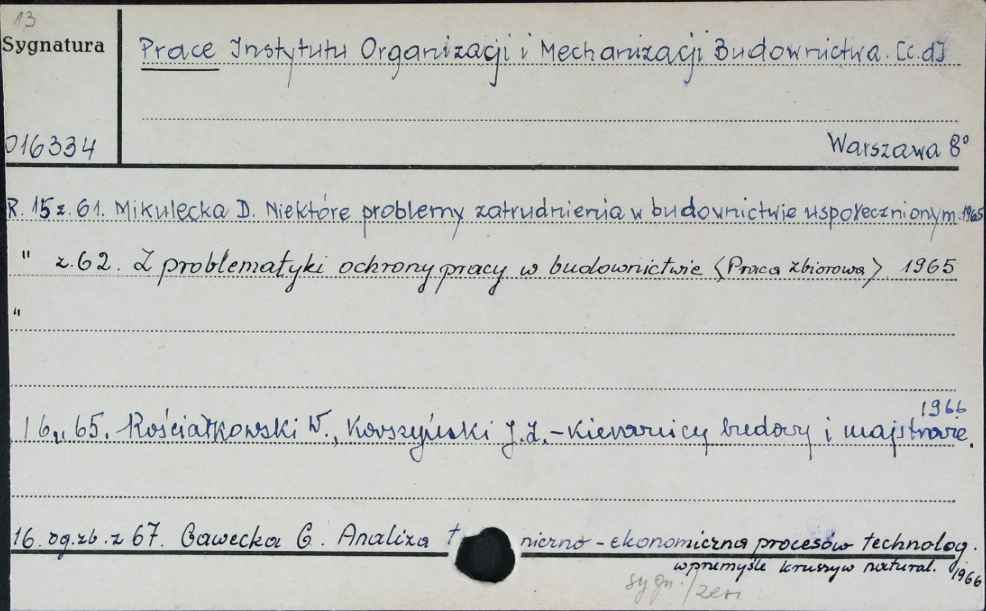 13
Sygnatura
Prace Instytutu Organizacji i Mechanizacji Budownictwa. [c.d]
016334
Warszawa 8°
R. 15 z. 61. Mikulecka D. Niektóre problemy zatrudnienia w budownictwie uspołecznionym. 1965
" z. 62. Z problematyki ochrony pracy w budownictwie <Praca zbiorowa> 1965
"
1966
16 „ 65. Kościałkowski W., Korszyński J.Z. - Kierownicy budowy i majstrowie.
16. og.zb. z 67. Gawecka G. Analiza t niczno - ekonomiczna procesów technolog.
w przemyśle kruszyw natural. 1966
sygn. / zesz